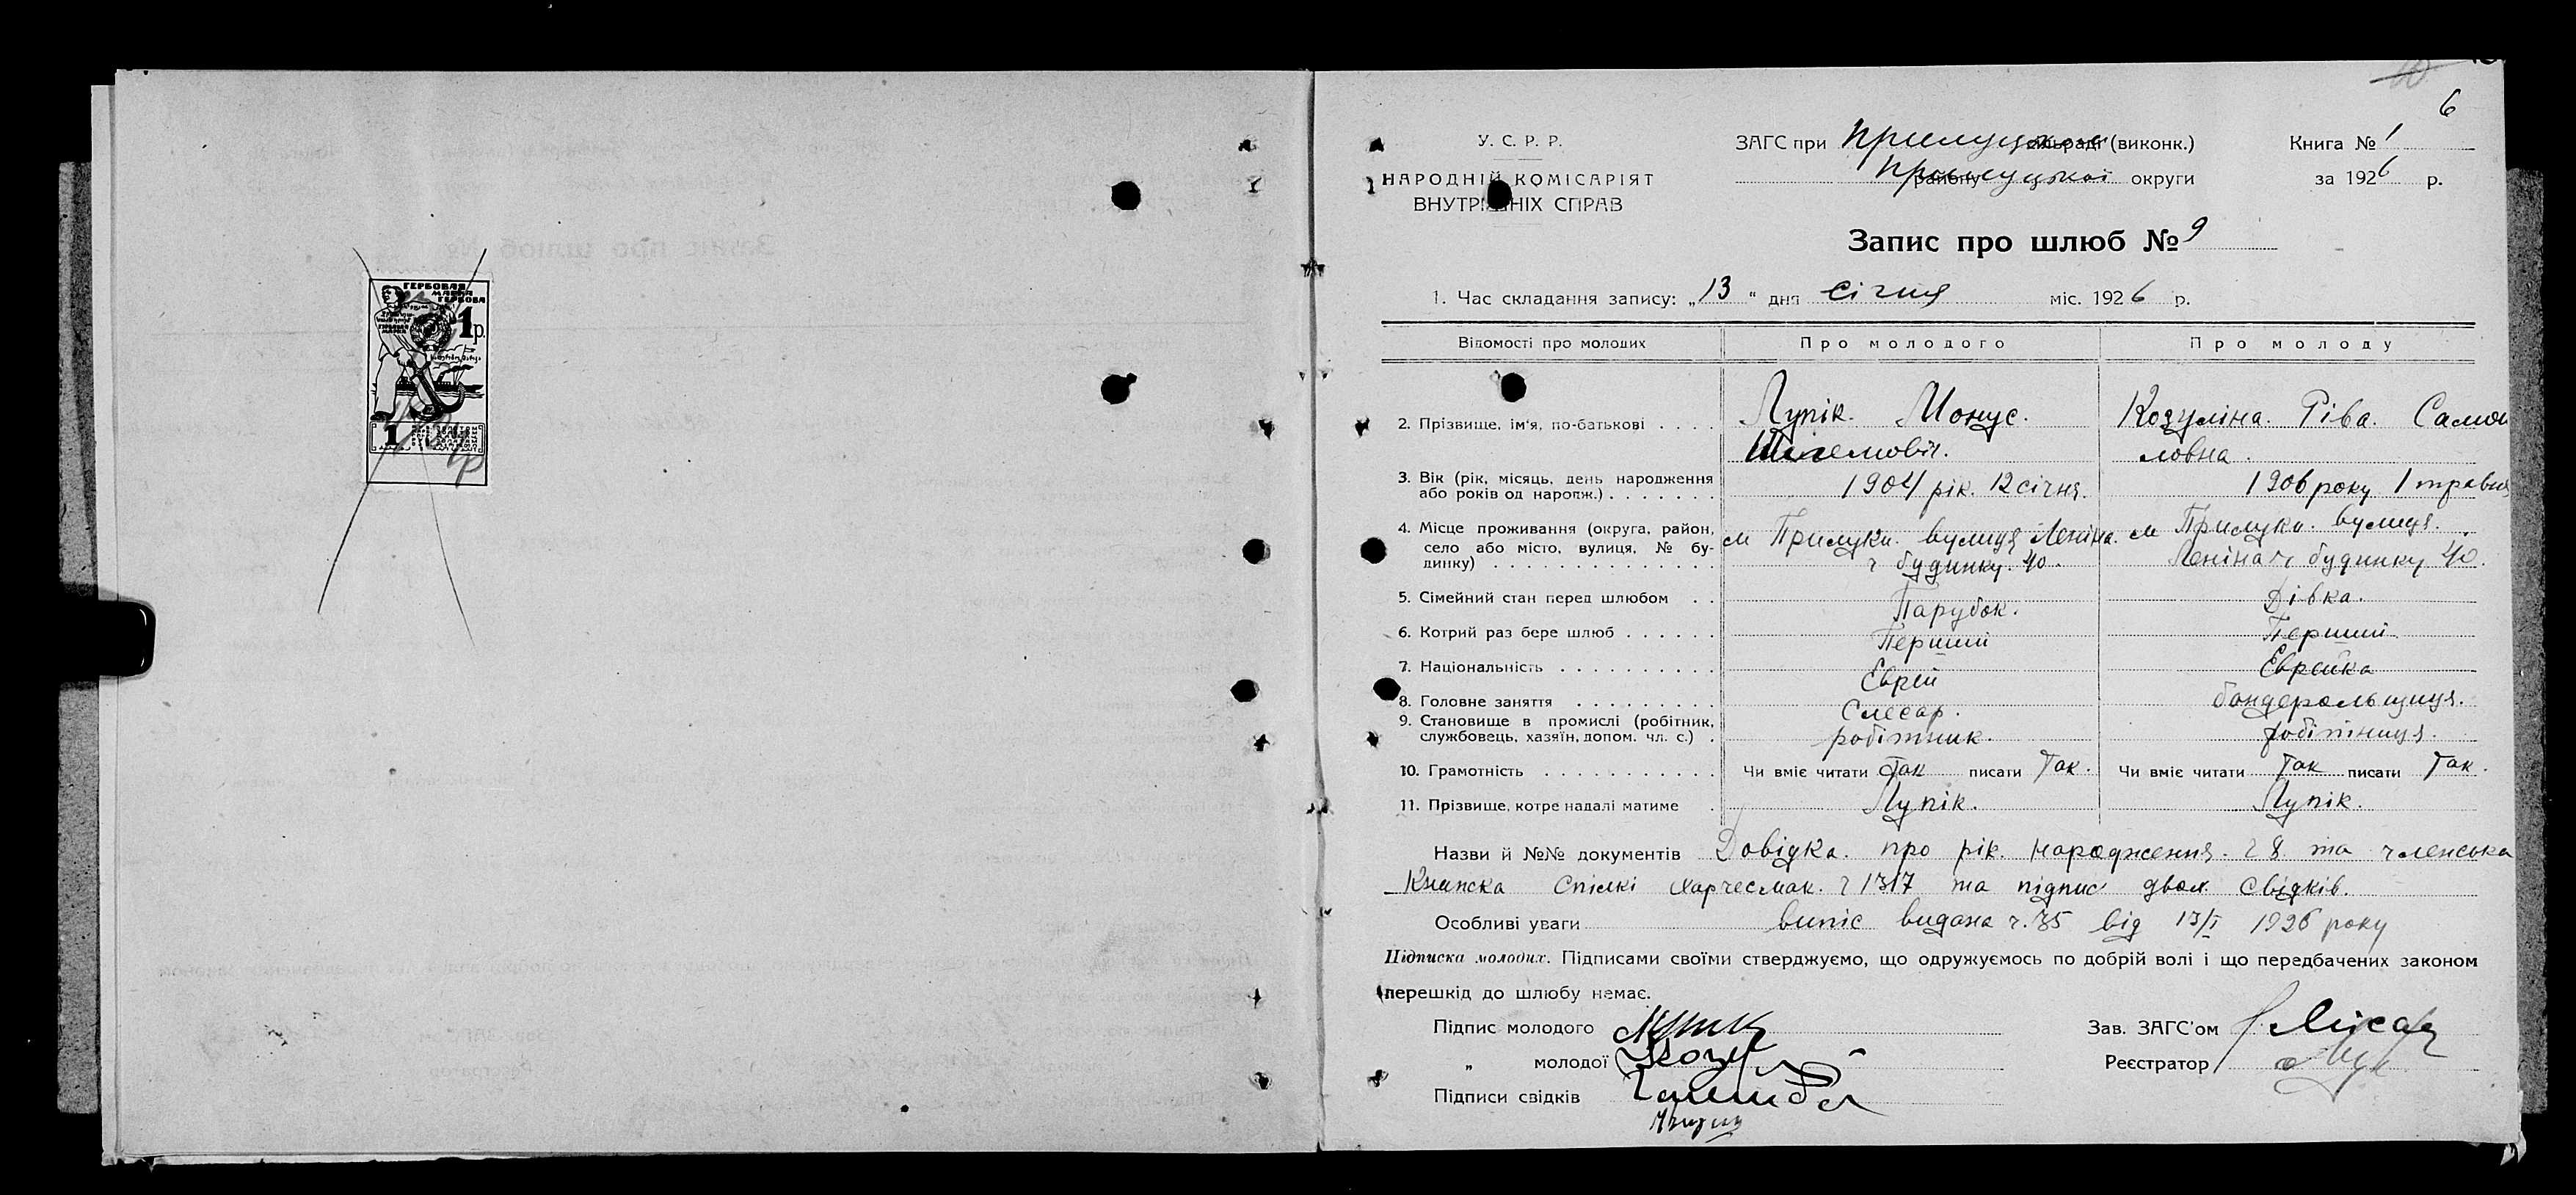 6
У. С. Р. Р.
НАРОДНІЙ КОМІСАРІЯТ
ВНУТРІШНІХ СПРАВ
ЗАГС при Прилуцком сільраді (виконк.)
району Прилуцької округи
Книга № 1
за 1926 р.
Запис про шлюб № 9
1. Час складання запису: „13" дня січня міс. 1926 р.
Відомості про молодих
Про молодого
Про молоду
2. Прізвище, ім'я, по-батькові
Лупік. Монус.
Козуліна. Ріва. Самой
ловна.
3. Вік (рік, місяць, день народження
або років од народж.)
1904 рік. 12 січня.
1906 року 1 травня
4. Місце проживання (округа, район,
село або місто, вулиця, № бу-
динку)
м Прилуки. вулиця Леніна.
ч будинку. 40.
м Прилуки. вулиця.
Леніна ч будинку 40.
5. Сімейний стан перед шлюбом
Парубок.
Дівка.
6. Котрий раз бере шлюб
Перший
Перший
7. Національність
Еврей
Еврейка
8. Головне заняття
Слесар.
бандерольщиця.
9. Становище в промислі (робітник,
службовець, хазяїн, допом. чл. с.)
робітник.
робітниця.
10. Грамотність
Чи вміє читати так писати Так.
Чи вміє читати Так писати Так.
11. Прізвище, котре надалі матиме
Лупік.
Лупік.
Назви й №№ документів Довідка. про рік. народження. ч 8 та членська
Книжка Спілкі Харчесмак. ч 1317 та підпис двох свідків.
Особливі уваги випіс видана ч. 35 від 13/I 1926 року
Підписка молодих. Підписами своїми стверджуємо, що одружуємось по добрій волі і що передбачених законом
перешкід до шлюбу немає.
Підпис молодого
„ молодої
Підписи свідків
Зав. ЗАГС'ом
Реєстратор
ГЕРБОВАЯ
МАРКА
ГЕРБОВА
1 р.
1